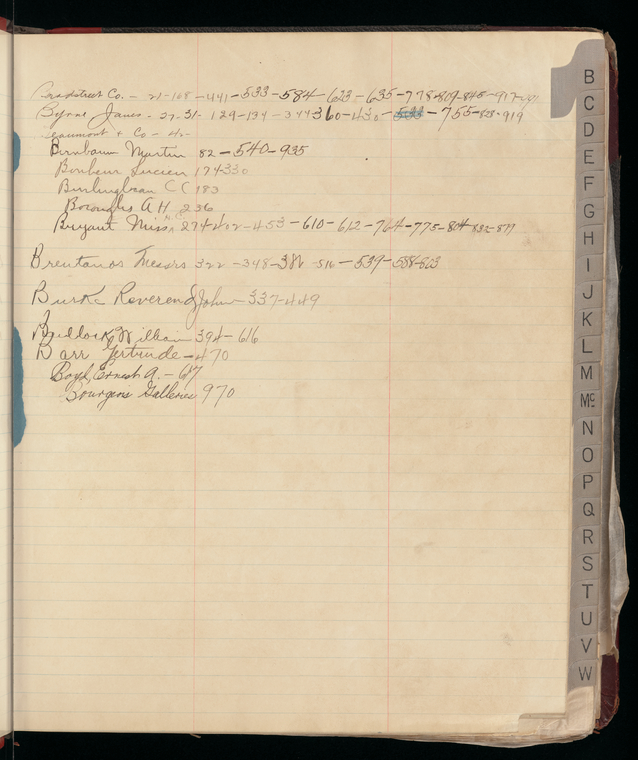 Bradstreet Co. - 21-108-441-533-584-623-635-778-819-845-917-
Byrne James - 27-31-129-134-344-360-430-533-755-828-919
Beaumont & Co - 40-
Birnbaum Martin 82-540-935
Bonheur Lucien 174-330
Burlingham C C 183
Boroughs A H 236
Bryant Miss 274-402-453-610-612-764-775-804-832-877
Brentanos Messrs 322-348-382-516-539-588-823
Burke Reverend John 337-449
Bullock William 394-616
Barr Gertrude-470
Boyd, Ernest A. - 617
Bourgeois Galleries 970
B
C
D
E
F
G
H
I
J
K
L
M
Mc
N
O
P
Q
R
S
T
U
V
W